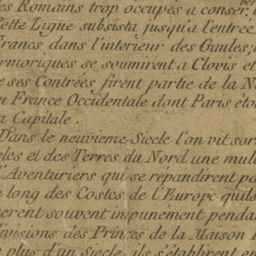 es Romains trop occupés a conser
Cette Ligue subsista jusqu'a l'entrée
Francs dans l'interieur des Gaules;
rmoriques se soumirent a Clovis et
e ses Contrées firent partie de la N
n France Occidentale dont Paris éto
a Capitale.
Dans le neuvieme Siecle l'on vit sor
les et des Terres du Nord une mul
'Aventuriers qui se répandirent pa
e long des Costes de l'Europe quils
erent souvent impunement penda
ivisions des Princes de la Maison
plus d'un siecle, ils s'établirent